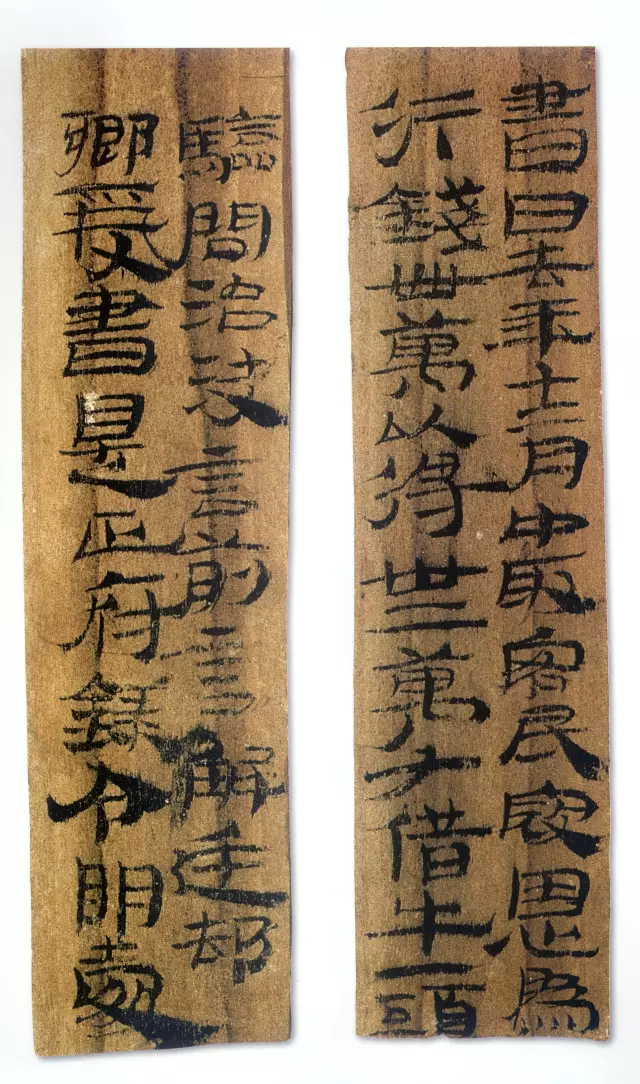 書曰去年十二月中取客民寇恩為
行錢卌萬以得卅二萬又借牛一頭
驗問治決言前言解廷却
鄉爰書是正府錄令明處